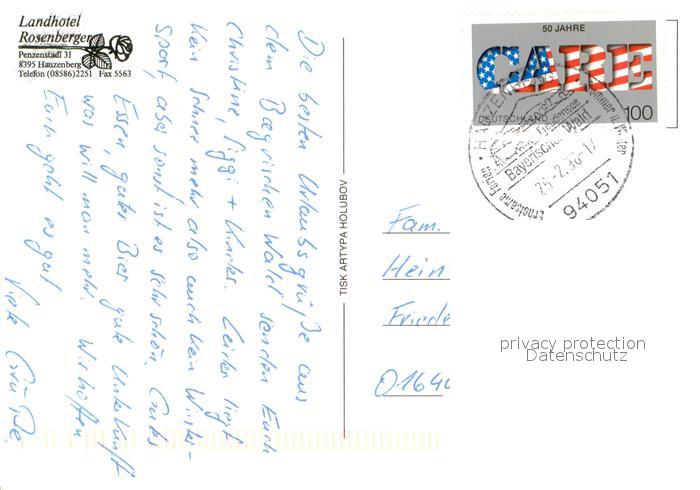 Landhotel
Rosenberger
Penzenstadl 31
8395 Hauzenberg
Telefon (08586)2251 Fax 5563
Die besten Urlaubsgrüße aus
dem Bayrischen Wald senden Euch
Christine, Siggi + Kinder. Leider liegt
kein Schnee mehr also auch kein Winter-
sport, aber sonst ist es sehr schön. Gutes
Essen, gutes Bier gute Unterkunft
was will man mehr. Wir hoffen
Euch geht es gut.
Viele Grüße
TISK ARTYPA HOLUBOV
50 JAHRE
CARE
DEUTSCHLAND
100
Bayerischer Wald
94051
Fam.
Hein
Friede
O1644
privacy protection
Datenschutz